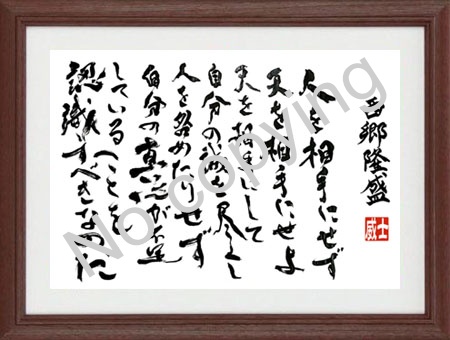 西郷隆盛
威士
人を相手にせず
天を相手にせよ
天を相手にして
自分の誠を尽くし
人を咎めたりせず
自分の真心が不足
していることを
認識すべきなのだ
No copying